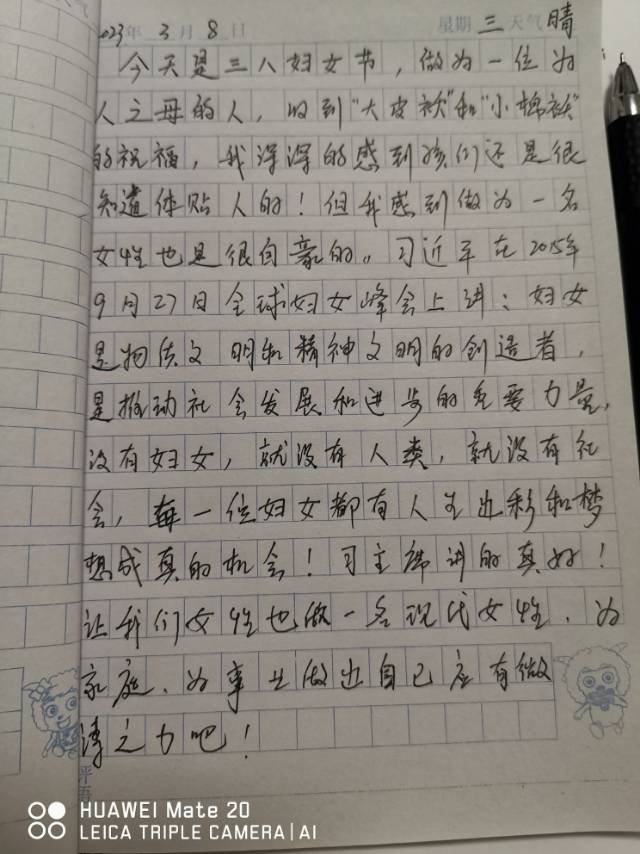 2023年 3 月 8 日 星期 三 天气 晴
今天是三八妇女节，做为一位为
人之母的人，收到"大皮袄"和"小棉袄"
的祝福，我深深的感到孩们还是很
知道体贴人的！但我感到做为一名
女性也是很自豪的。习近平在2015年
9月27日全球妇女峰会上讲：妇女
是物质文明和精神文明的创造者，
是推动社会发展和进步的重要力量，
没有妇女，就没有人类，就没有社
会，每一位妇女都有人生出彩和梦
想成真的机会！习主席讲的真好！
让我们女性也做一名现代女性，为
家庭、为事业做出自己应有微
薄之力吧！
评语
HUAWEI Mate 20
LEICA TRIPLE CAMERA | AI